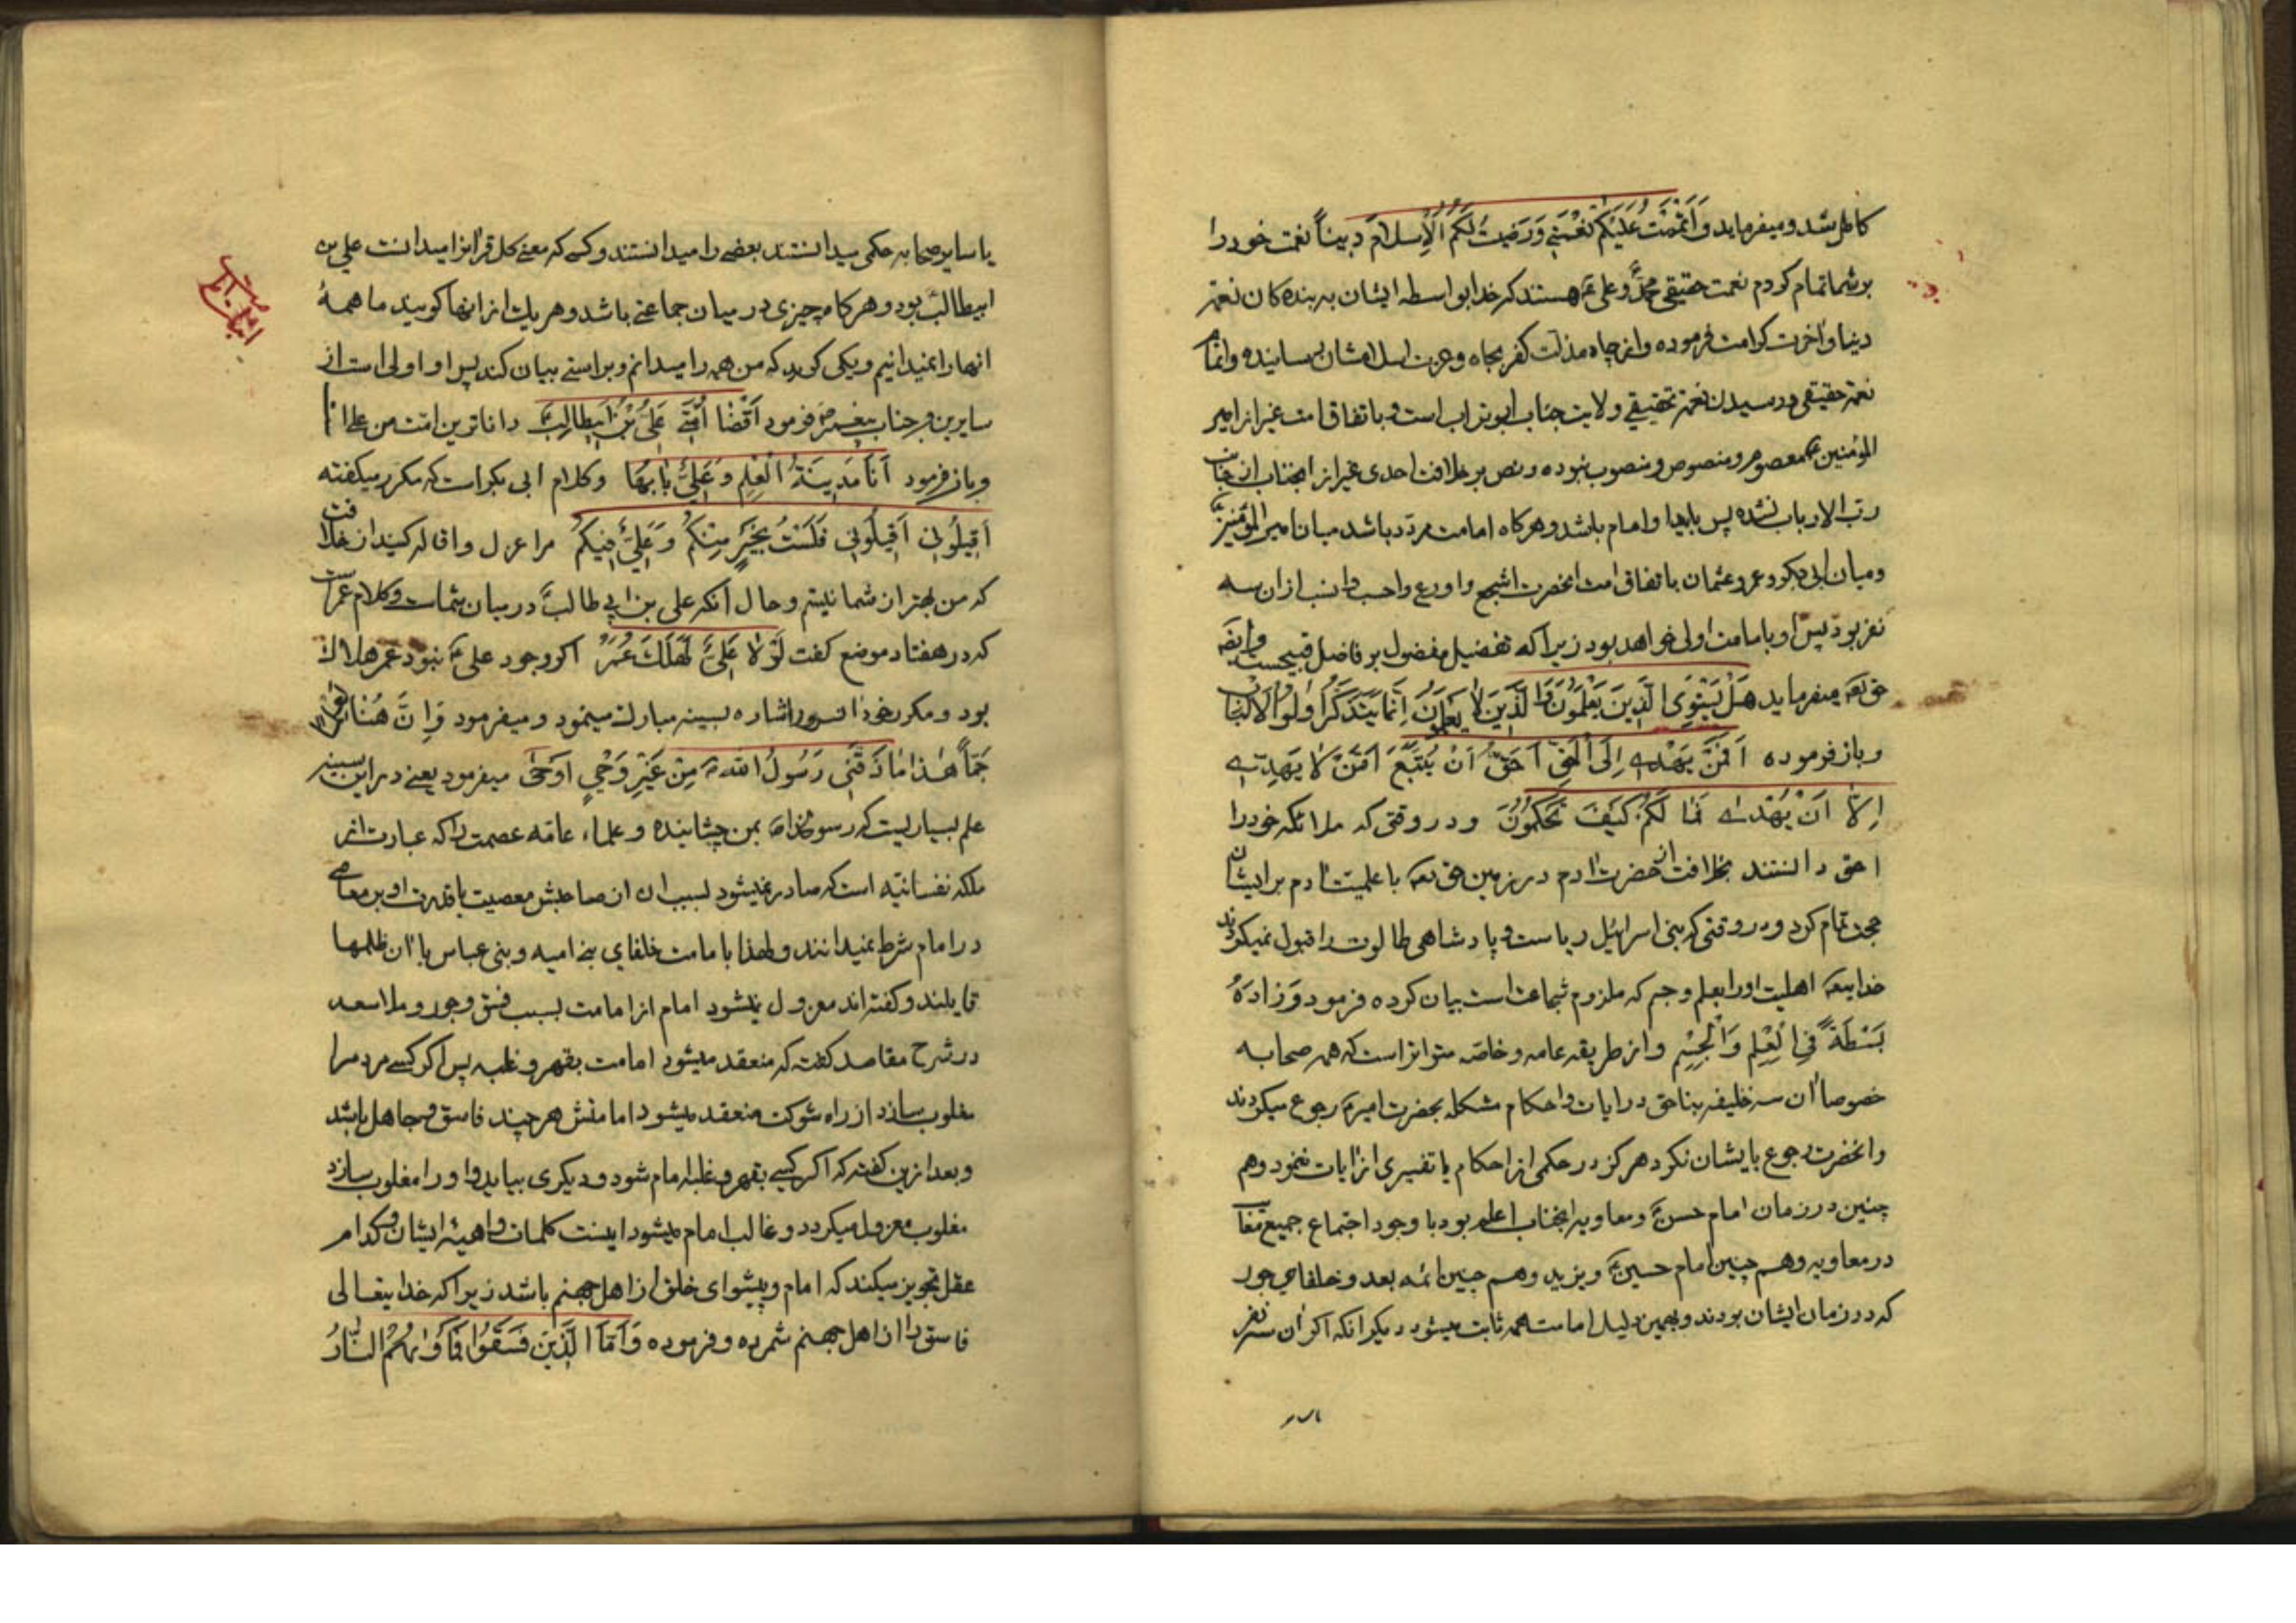 كامل شد و میفرماید وَاَتْمَمْتُ عَلَيْكُمْ نِعْمَتِي وَرَضِيتُ لَكُمُ الْاِسْلَامَ دِينًا نعمت خود را
بر شما تمام کردم نعمت حقیقی محمد و علی هستند که خدا بواسطه ایشان به بنده کان نعمة
دنیا و اخرت کرامت فرموده و از چاه مذلت کفر بجاه و عزت اسلامشان رسانیده و اتمام
نعمة حقیقی و رسیدن نعمة تحقیقی ولایت جناب ابوتراب است و باتفاق امت غیر از امیر
المؤمنین ع معصوم و منصوص و منصوب نبوده و نص بر خلافت احدی غیر از انجناب از جناب
رب الارباب نشده پس بایدا و امام باشد و هرکاه امامت مردد باشد میان امیرالمؤمنین
و میان ابی بکر و عمر و عثمان باتفاق امت انحضرت اشجع و اورع و احسب و انسب از ان سه
نفر بود پس او بامامت اولی خواهد بود زیرا که تفضیل مفضول بر فاضل قبیحست و ایضا
حق تعه میفرماید هَلْ يَسْتَوِى الَّذِينَ يَعْلَمُونَ وَالَّذِينَ لَا يَعْلَمُونَ اِنَّمَا يَتَذَكَّرُ اُولُوا الْاَلْبَابِ
و باز فرموده اَفَمَنْ يَهْدِي اِلَى الْحَقِّ اَحَقُّ اَنْ يُتَّبَعَ اَمَّنْ لَا يَهِدِّي
اِلَّا اَنْ يُهْدٰى فَمَا لَكُمْ كَيْفَ تَحْكُمُونَ و در وقتی که ملائکه خود را
احق دانستند بخلافت از حضرت ادم در زمین حق تعه باعلمیت ادم بر ایشان
حجت تمام کرد و در وقتی که بنی اسرائیل ریاست و پادشاهی طالوت را قبول نمیکردند
خدایتعه اهلیت او را بعلم و جسم که ملزوم شجاعت است بیان کرده فرمود وَزَادَهُ
بَسْطَةً فِي الْعِلْمِ وَالْجِسْمِ و از طریقه عامه و خاصه متواتر است که همه صحابه
خصوصا ان سه خلیفه بناحق در ایات و احکام مشکله بحضرت امیر رجوع میکردند
و انحضرت رجوع بایشان نکرد هرکز در حکمی از احکام یا تفسیری از ایات ننمود و هم
چنین در زمان امام حسن و معاویه انجناب اعلم بود با وجود اجتماع جمیع
در معاویه و هم چنین امام حسین و یزید و هم چنین ائمه بعد و خلفای جور
که در زمان ایشان بودند و بهمین دلیل امامت همه ثابت میشود دیکر انکه اکر ان سه نفر
یا سایر صحابه حکمی میدانستند بعضی را میدانستند و کسی که معنی کل قرانرا میدانست علی بن
ابیطالب بود و هرکاه چیزی در میان جماعتی باشد و هر یك از انها کویند ما همهٔ
انها را نمیدانیم و یکی کوید که من همه را میدانم و براستی بیان کند پس او اولی است از
سایرین و جناب پیغمبر فرمود اَقْضَا اُمَّتِي عَلِيُّ بْنُ اَبِيطَالِبٍ داناترین امت من علی
و باز فرمود اَنَا مَدِينَةُ الْعِلْمِ وَعَلِيٌّ بَابُهَا و کلام ابی بکر است که مکرر میکفته
اَقِيلُونِي اَقِيلُونِي فَلَسْتُ بِخَيْرٍ مِنْكُمْ وَعَلِيٌّ فِيكُمْ مرا عزل و اقاله کنید از خلافت
که من بهتر از شما نیستم و حال انکه علی بن ابی طالب در میان شماست و کلام عمر است
که در هفتاد موضع کفت لَوْلَا عَلِيٌّ لَهَلَكَ عُمَرُ اکر وجود علی نبود عمر هلاك
بود و مکرر خود اشاره بسینه مبارك مینمود و میفرمود وَاِنَّ هُنَا
جَمًّا هٰذَا مَا ذَقَّنِي رَسُولُ الله مِنْ غَيْرِ وَحْيٍ اُوحِيَ میفرمود یعنی در این سینه
علم بسیاریست که رسول خدا بمن چشانیده و علماء عامه عصمت را که عبارت از
ملکه نفسانیه است که صادر نمیشود بسبب ان از صاحبش معصیت با قدرت او بر معاصی
در امام شرط نمیدانند و لهذا بامامت خلفای بنی امیه و بنی عباس با ان ظلمها
قایلند و کفته اند معزول نمیشود امام از امامت بسبب فسق و جور و ملا سعد
در شرح مقاصد کفته که منعقد میشود امامت بقهر و غلبه پس اکر کسی مردم را
مغلوب سازد از راه شوکت منعقد میشود امامتش هر چند فاسق و جاهل باشد
و بعد ازین کفته که اکر کسی بقهر و غلبه امام شود و دیکری بیاید و او را مغلوب سازد
مغلوب معزول میکردد و غالب امام میشود اینست کلمات واهیهٔ ایشان و کدام
عقل تجویز میکند که امام و پیشوای خلق از اهل جهنم باشد زیرا که خدایتعالی
فاسق را از اهل جهنم شمرده و فرموده وَاَمَّا الَّذِينَ فَسَقُوا فَمَأْوٰىهُمُ النَّارُ